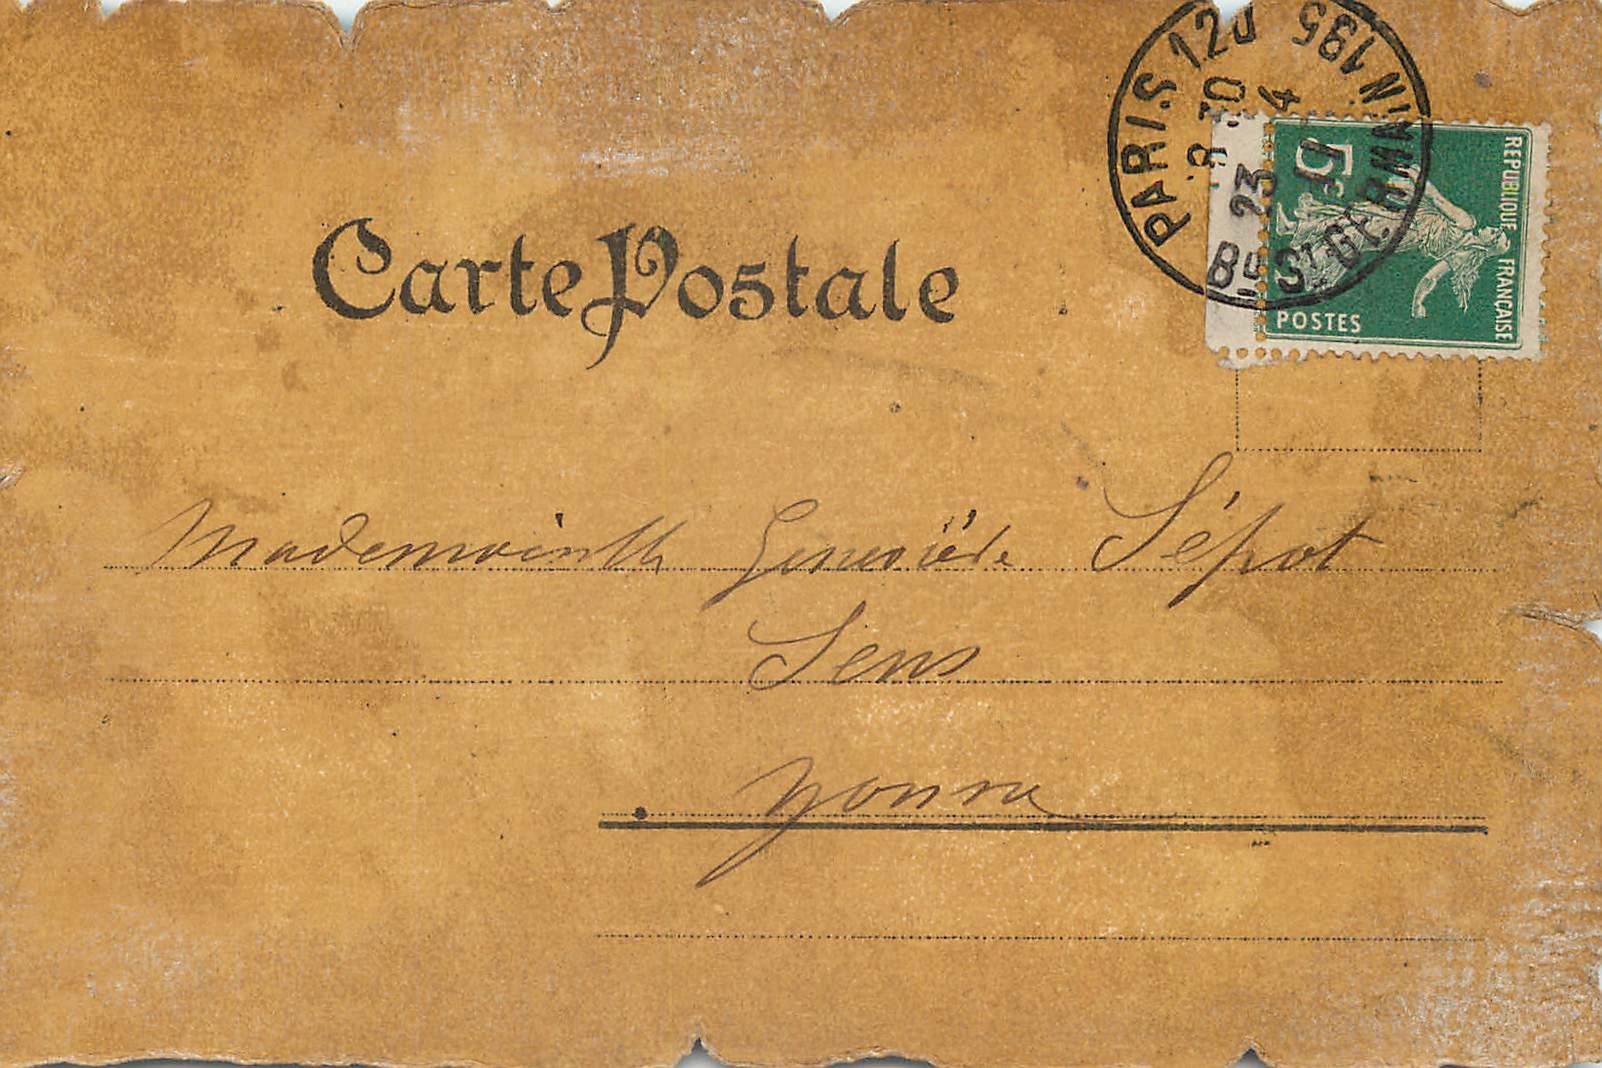 Carte Postale
PARIS 120
Bd St GERMAIN 195
8 30
23 4
REPUBLIQUE FRANÇAISE
5c
POSTES
Mademoiselle Geneviève Sépot
Sens
Yonne